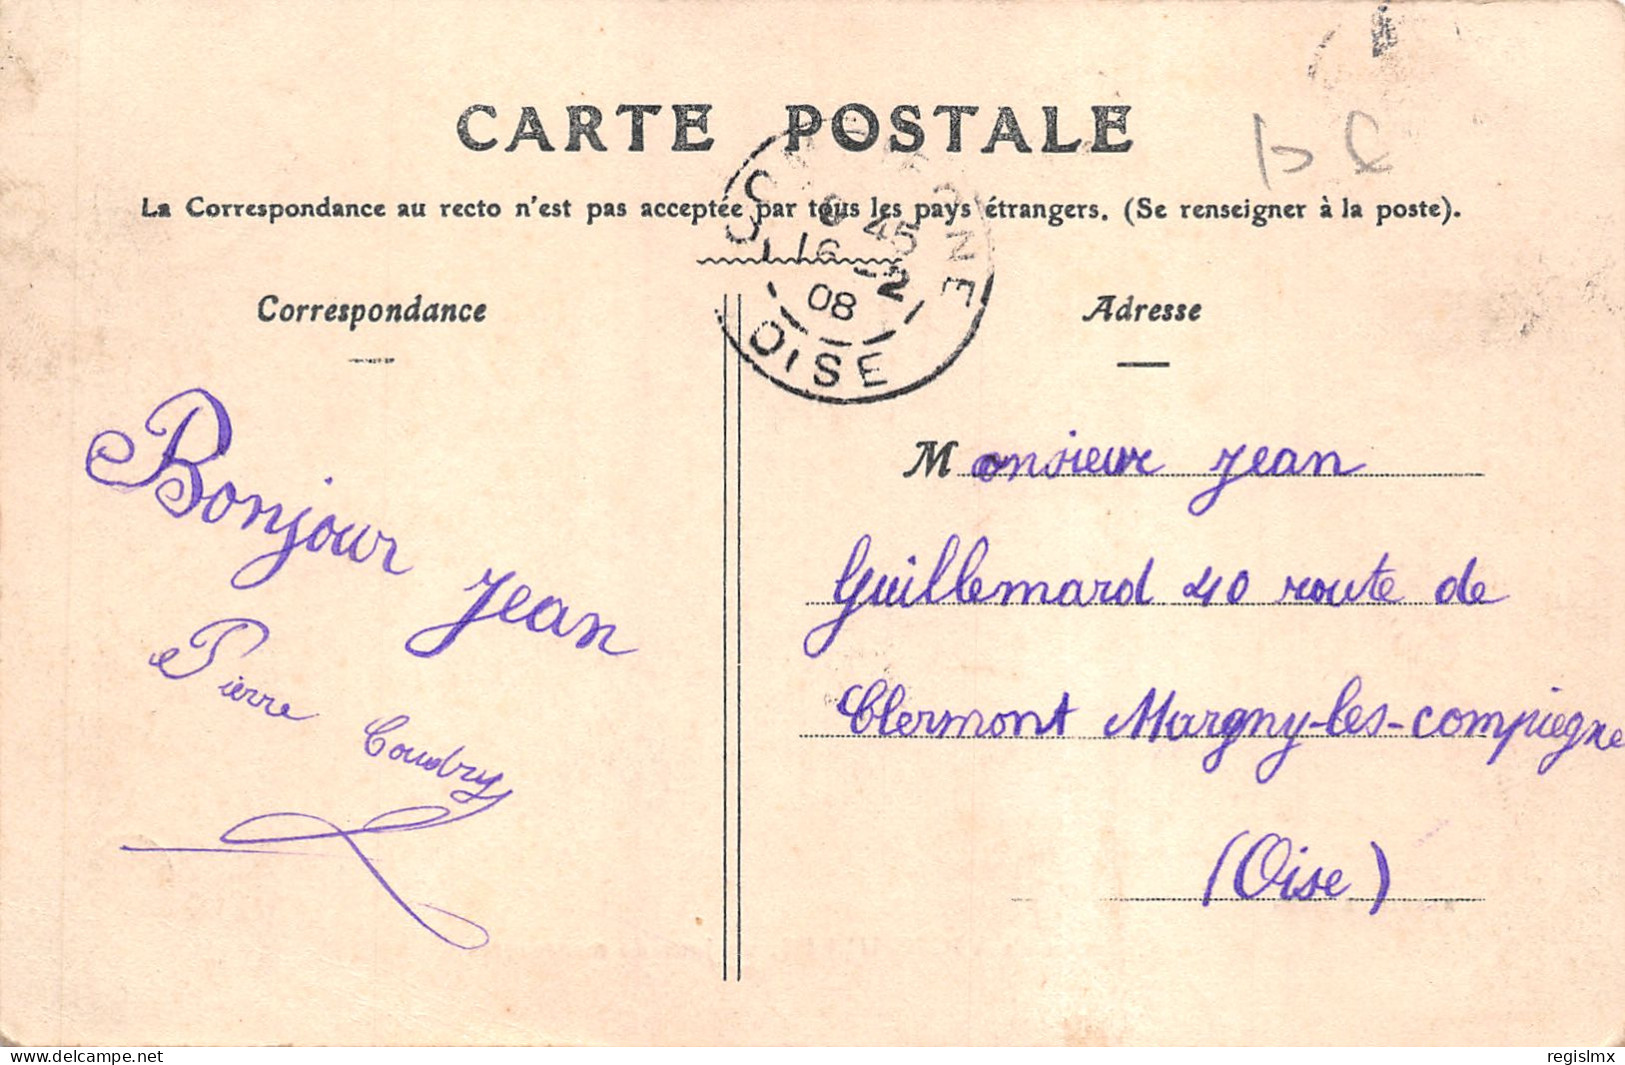 CARTE POSTALE
La Correspondance au recto n'est pas acceptée par tous les pays étrangers. (Se renseigner à la poste).
45
16 -2
08
OISE
Correspondance
Bonjour Jean
Pierre Coudry
Adresse
Monsieur Jean
Guillemard 40 route de
Clermont Margny-les-compiegne
(Oise)
www.delcampe.net
regislmx